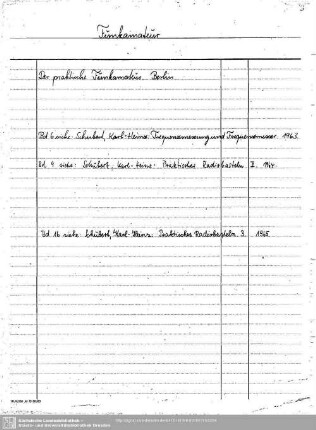 Funkamateur
Der praktische Funkamateur. Berlin
Bd 6 siehe: Schubert, Karl-Heinz: Frequenzmessung und Frequenzmesser. 1963.
Bd 9 siehe: Schubert, Karl-Heinz: Praktisches Radiobasteln II.
Bd 16 siehe: Schubert, Karl-Heinz: Praktisches Radiobasteln. 3. 1965
Sächsische Landesbibliothek -
Staats- und Universitätsbibliothek Dresden